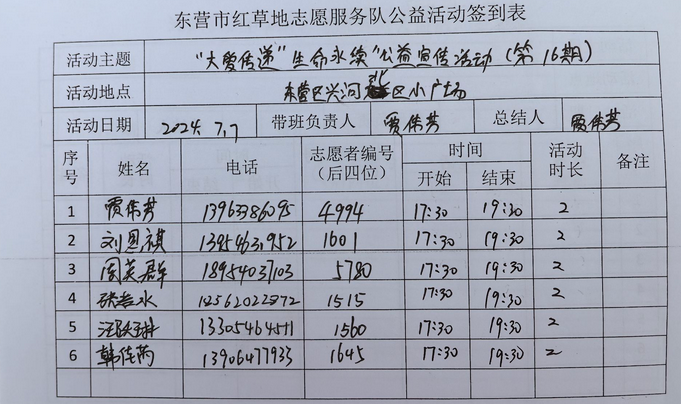 东营市红草地志愿服务队公益活动签到表
活动主题 “大爱传递”生命永续“公益宣传活动（第16期）
活动地点 东营区兴河 区小广场
活动日期 2024.7.7 带班负责人 贾伟芳 总结人 贾伟芳
序号 姓名 电话 志愿者编号（后四位） 时间 开始 结束 活动时长 备注
1 贾伟芳 13963386095 4994 17:30 19:30 2
2 刘恩祺 1601 17:30 19:30 2
3 周英群 18954037103 5780 17:30 19:30 2
4 张 水 1515 17:30 19:30 2
5 13305464511 1560 17:30 19:30 2
6 韩佳芮 13906477933 1645 17:30 19:30 2